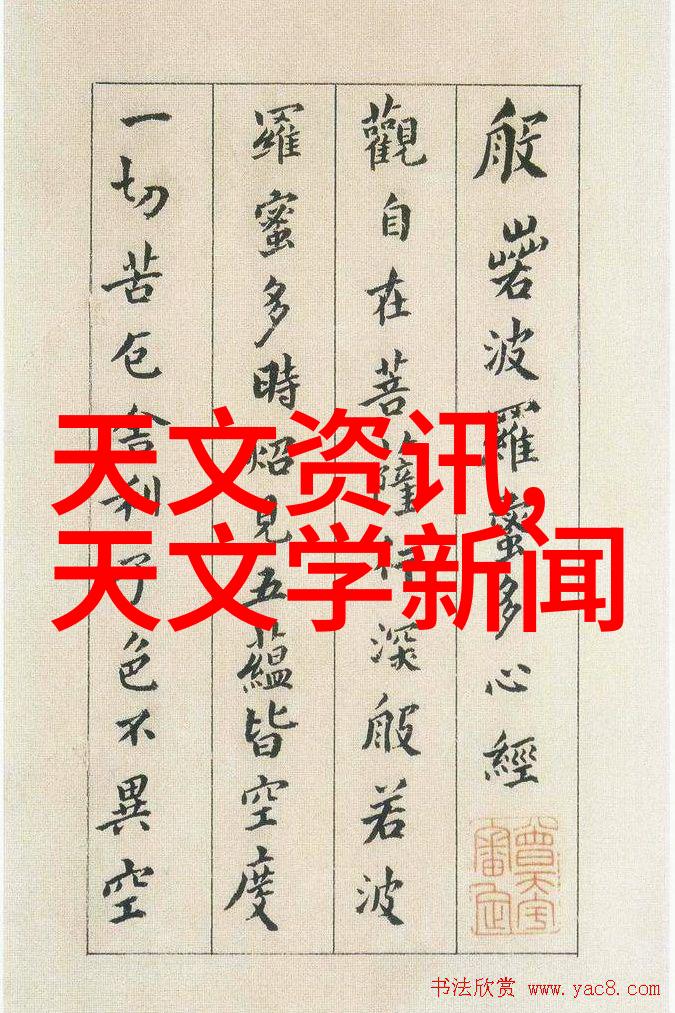 般若波羅蜜多心經
觀自在菩薩行深般若波
羅蜜多時炤見五蘊皆空度
一切苦厄舍利子色不異空
天文资讯,
天文学新闻
书法欣赏 www.yac8.com